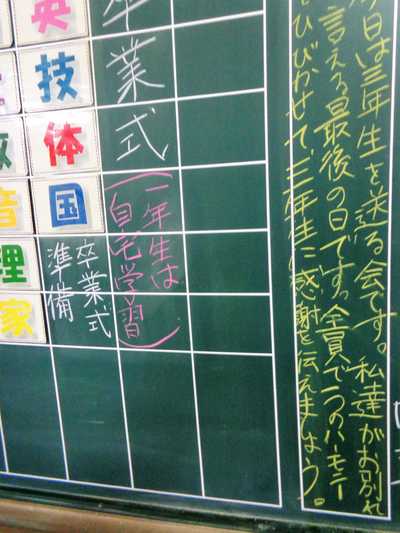 今日は三年生を送る会です。私達がお別れ
言える最後の日です。全員で一つのハーモニー
ひびかせて、三年生に感謝を伝えましょう。
卒業式
(一年生は
自宅学習)
英
技
体
国
卒業式
準備
数
音
理
家